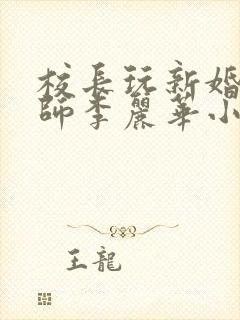 校長玩新婚
師李麗華小
王龍